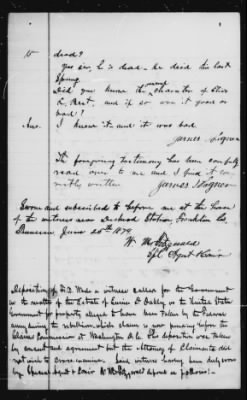 dead?
Yes sir, he is dead. he died this last
Spring
Did you know the moral character of
Best, and if so was it good or
bad?
Ans. I knew it and it was bad.
James
The foregoing testimony has been carefully
read over to me and I find it
correctly written James
Sworn and subscribed to before me at the house
of the witness near Station, Franklin Co,
Tennessee June 20th 1879
Spl. Agent
Deposition of Wade a witness called for the Government
in the matter of the Estate of Dabbs vs the United States
Government for property alleged to have been taken by the Federal
army during the rebellion which claim is now pending before the
Claims Commission at Washington D.C. This deposition was taken
by consent and agreement but the Attorney of Claimants did
not wish to cross examine. Said witness having been duly sworn
by Special Agent deposes as follows:—